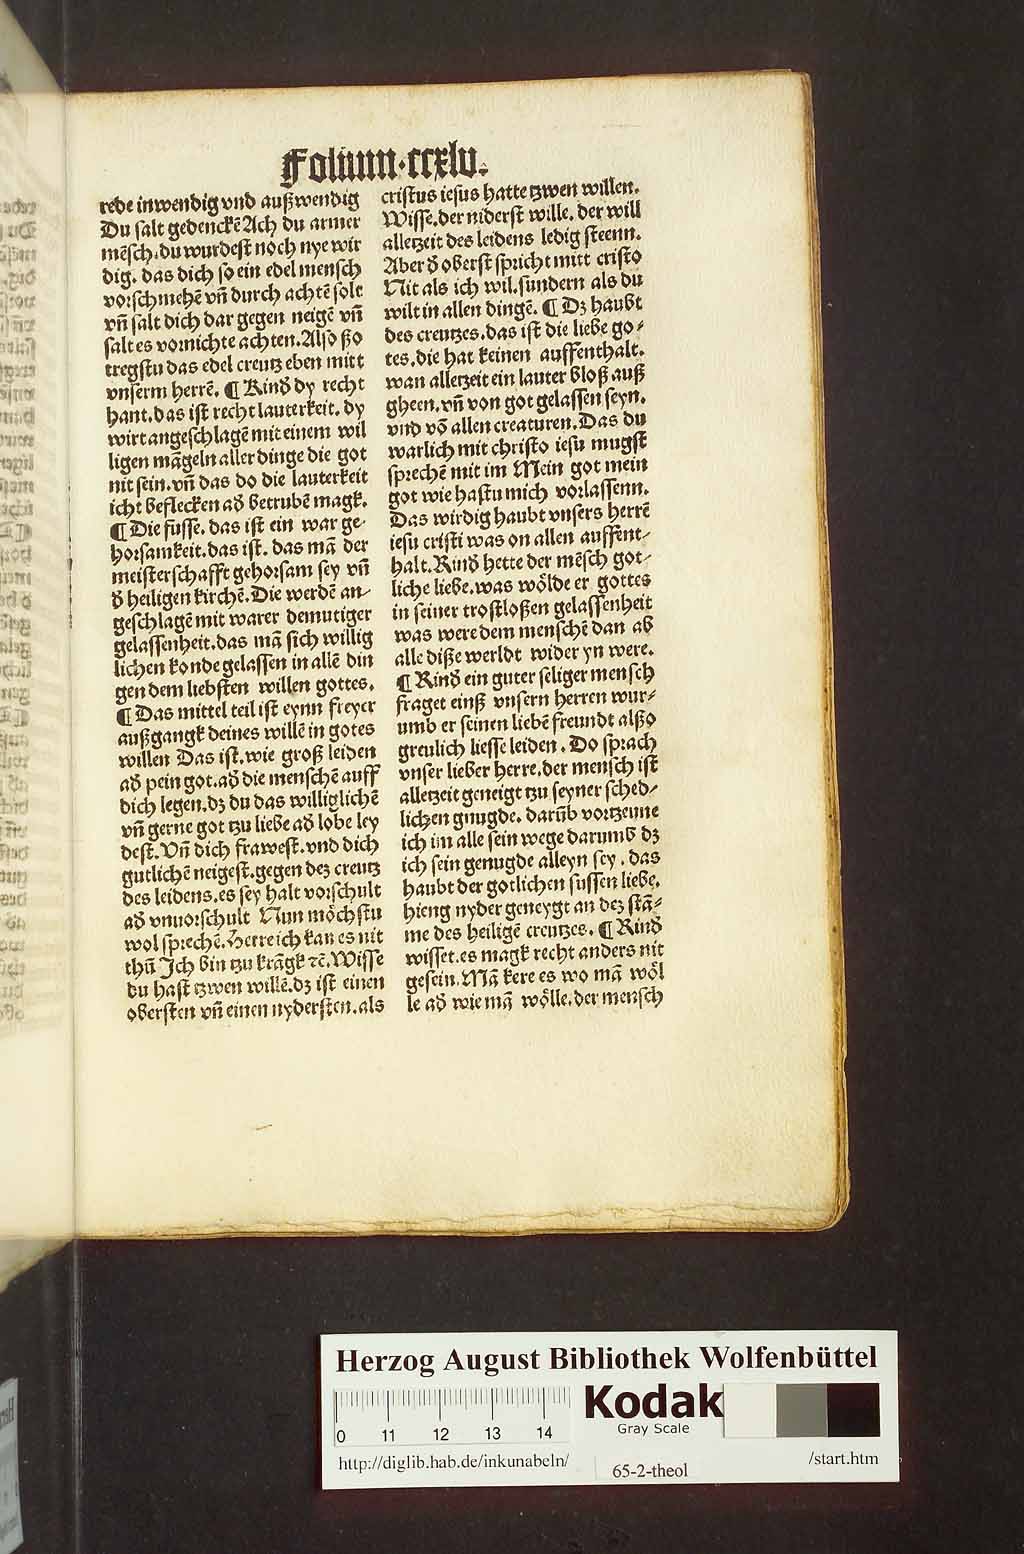 Folium.ccxlv.
rede inwendig vnd außwendig
Du salt gedenckē Ach du armer
mēsch.du wurdest noch nye wir
dig. das dich so ein edel mensch
vorschmehē vn̄ durch achtē solt
vn̄ salt dich dar gegen neigē vn̄
salt es vornichte achten.Also ßo
tregstu das edel creutz eben mitt
vnserm herrē. ¶ Kind dy recht
hant.das ist recht lauterkeit. dy
wirt angeschlagē mit einem wil
ligen māgeln aller dinge die got
nit sein.vn̄ das do die lauterkeit
icht beflecken ad betrubē magk.
¶ Die fusse. das ist ein war ge-
horsamkeit.das ist. das mā der
meisterschafft gehorsam sey vn̄
d heiligen kirchē.Die werdē an-
geschlagē mit warer demutiger
gelassenheit.das mā sich willig
lichen konde gelassen in allē din
gen dem liebsten willen gottes.
¶ Das mittel teil ist eynn freyer
außgangk deines willē in gotes
willen Das ist.wie groß leiden
ad pein got.ad die menschē auff
dich legen.dz du das williglichē
vn̄ gerne got tzu liebe ad lobe ley
dest.Vn̄ dich frawest.vnd dich
gutlichē neigest.gegen dez creutz
des leidens.es sey halt vorschult
ad vnuorschult Nun möchstu
wol sprechē.Herre ich kan es nit
thū Ich bin tzu krāgk ⁊c̄.Wisse
du hast tzwen willē.dz ist einen
obersten vn̄ einen nydersten.als
cristus iesus hatte tzwen willen.
Wisse.der niderst wille. der will
alletzeit des leidens ledig steenn.
Aber d oberst spricht mitt cristo
Nit als ich wil.sundern als du
wilt in allen dingē. ¶ Dz haubt
des creutzes.das ist die liebe go-
tes.die hat keinen auffenthalt.
wan alletzeit ein lauter bloß auß
gheen.vn̄ von got gelassen seyn.
vnd vō allen creaturen.Das du
warlich mit christo iesu mugst
sprechē mit im Mein got mein
got wie hastu mich vorlassenn.
Das wirdig haubt vnsers herrē
iesu cristi was on allen auffent-
halt.Kind hette der mēsch got-
liche liebe.was wölde er gottes
in seiner trostloßen gelassenheit
was were dem menschē dan ab
alle diße werldt wider yn were.
¶ Kind ein guter seliger mensch
fraget einß vnsern herren wur-
umb er seinen liebē freundt alßo
greulich liesse leiden. Do sprach
vnser lieber herre.der mensch ist
alletzeit geneigt tzu seyner sched-
lichen gnugde. darūb vortzeune
ich im alle sein wege darumb dz
ich sein genugde alleyn sey. das
haubt der gotlichen sussen liebe.
hieng nyder geneygt an dez stā-
me des heiligē creutzes. ¶ Kind
wisset.es magk recht anders nit
gesein. Mā kere es wo mā wöl
le ad wie mā wölle.der mensch
Herzog August Bibliothek Wolfenbüttel
0 11 12 13 14
Kodak
Gray Scale
http://diglib.hab.de/inkunabeln/
65-2-theol
/start.htm